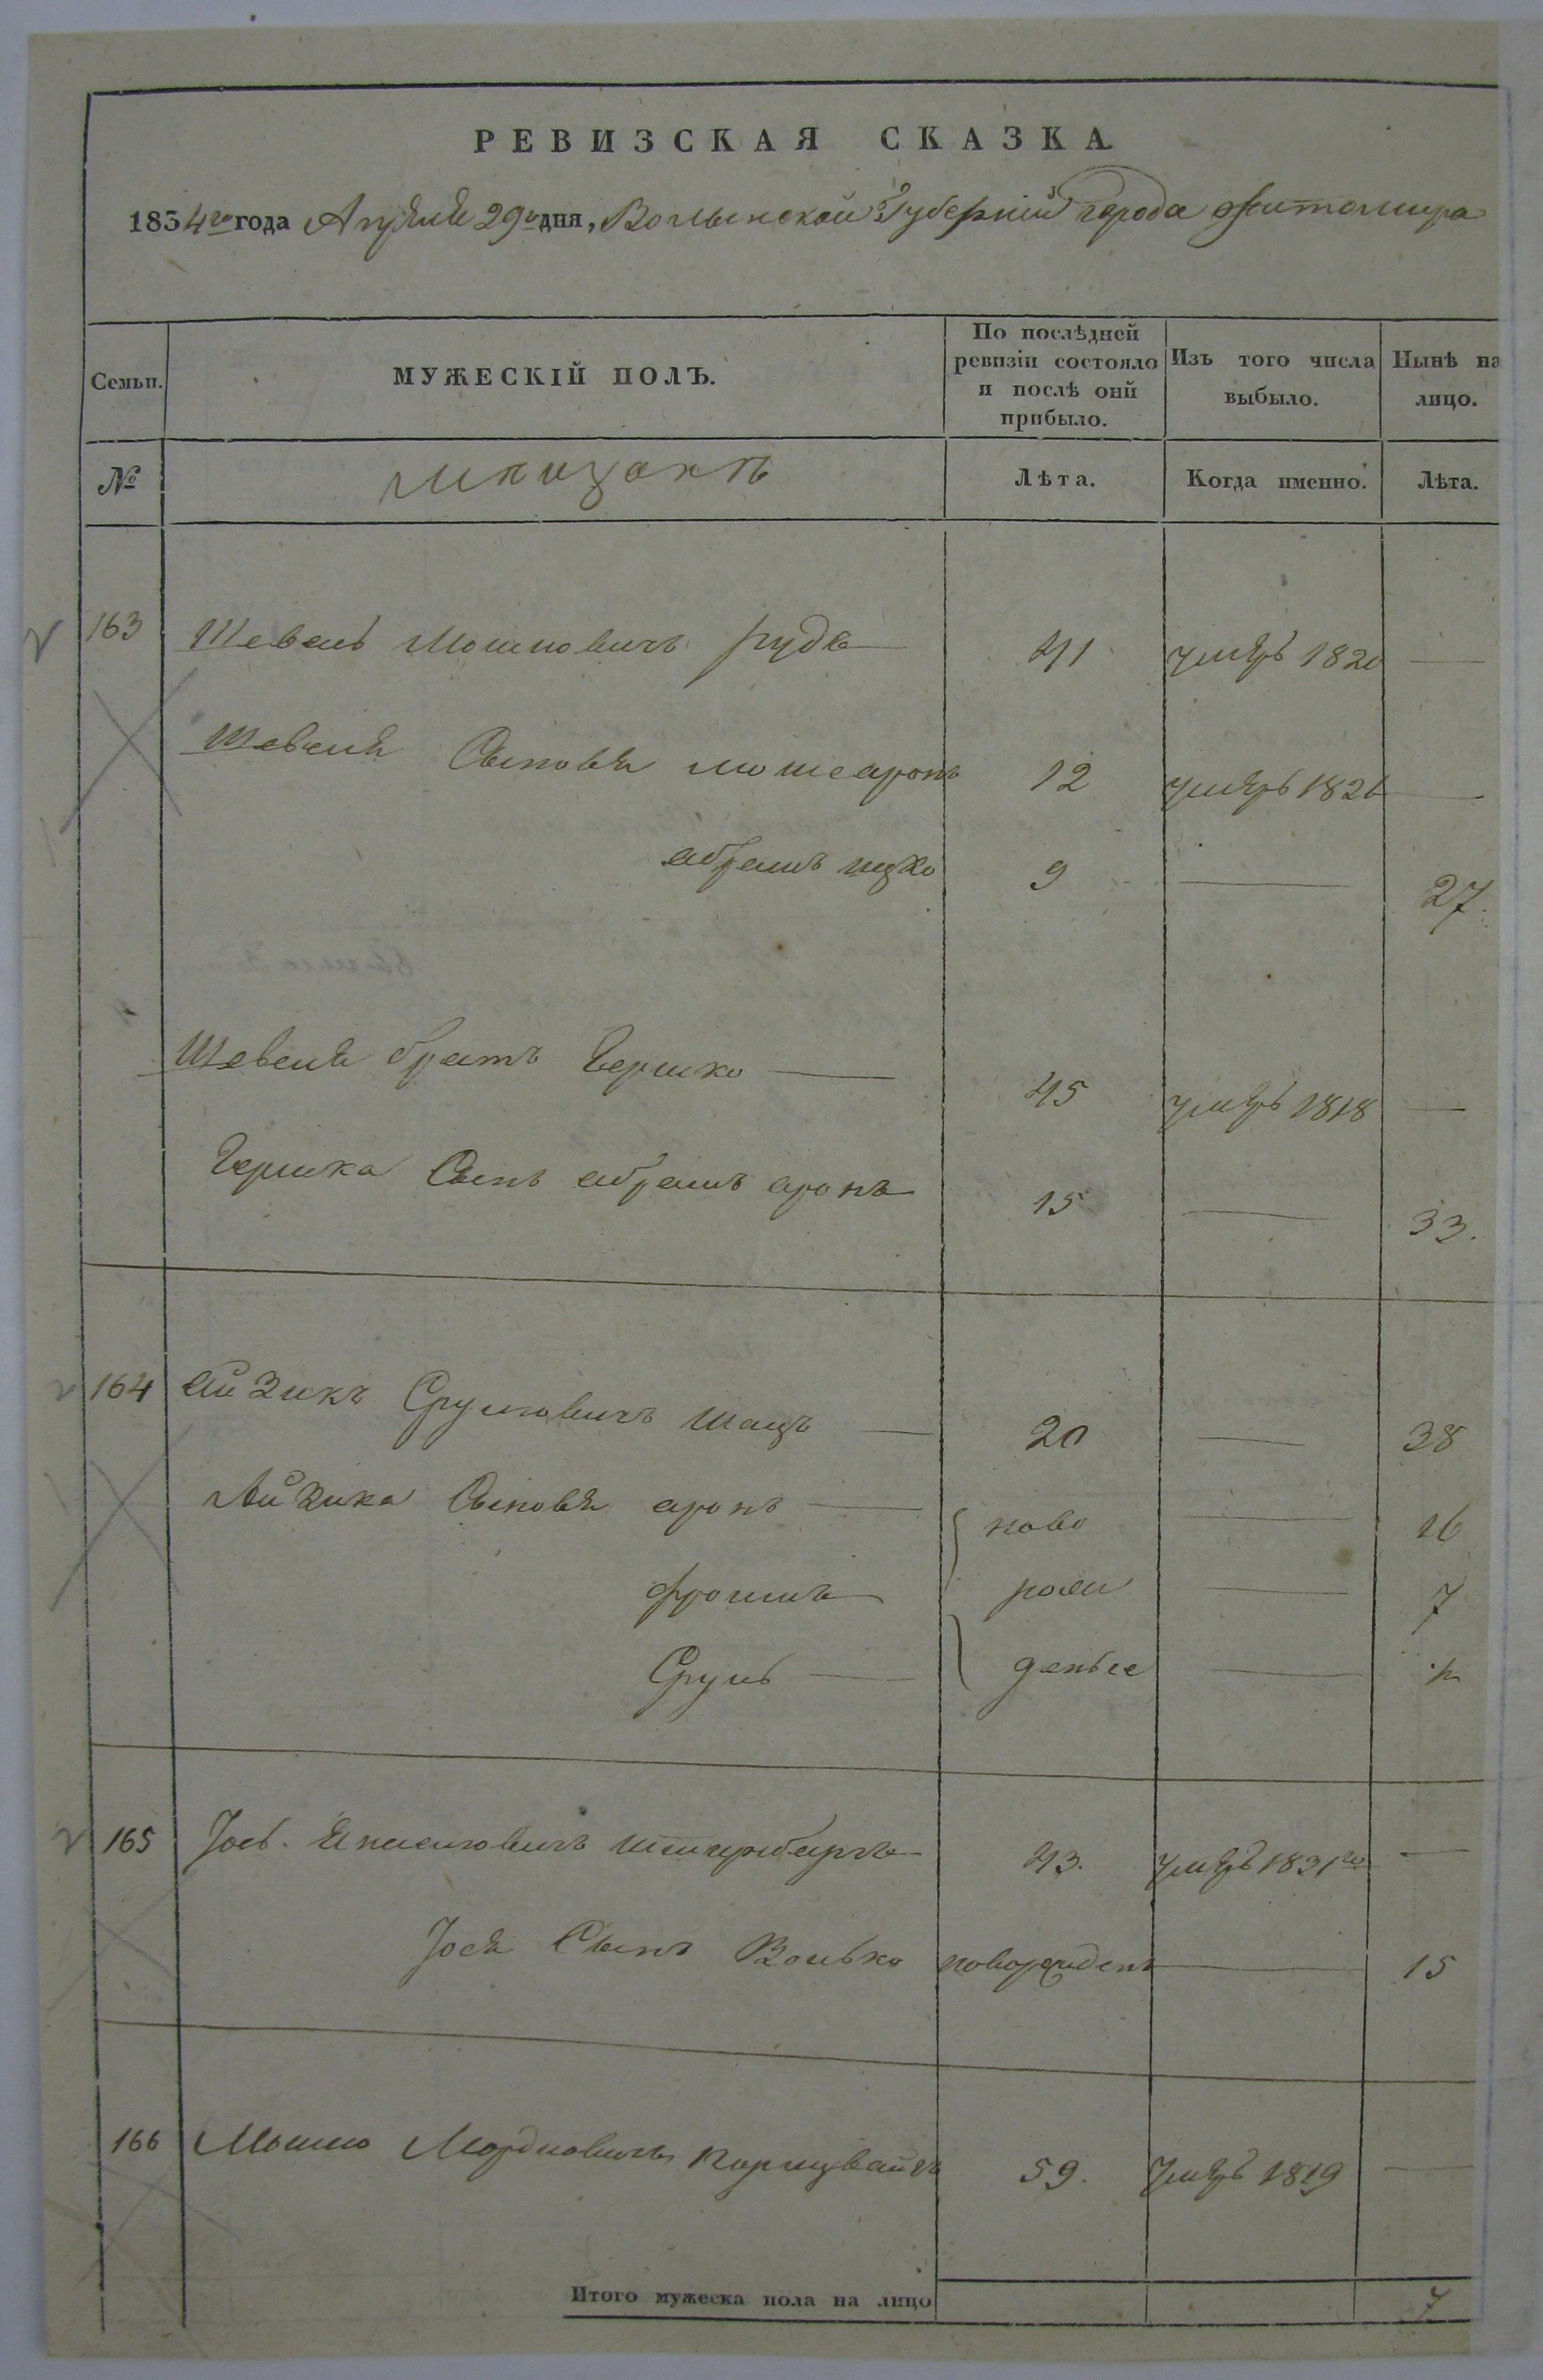 РЕВИЗСКАЯ СКАЗКА.
1834го года Апреля 29го дня, Волынской Губернии города Житомира
Семьи. МУЖЕСКІЙ ПОЛЪ. По послѣдней ревизіи состояло и послѣ оній прибыло. Изъ того числа выбыло. Нынѣ на лицо.
№ Лѣта. Когда именно. Лѣта.
163 Шевель Мошковичъ Руда 41 умеръ 1820 —
Шевеля Сыновья Мошеаронъ 12 умеръ 1826 —
абрамъ ицко 9 — 27.
Шевеля братъ Гершко — 45 умеръ 1818 —
Гершка Сынъ абрамъ аронъ 15 — 33.
164 айзикъ Срулиовичъ Шацъ — 20 — 38
Айзика Сыновья аронъ — ново — 16
фроимъ рожи — 7
Сруль — деные —
165 Іось 43. умеръ 1831го —
Іося Сынъ Волько новорожденъ — 15
166 Мошко Мордковичъ 59. умеръ 1819 —
Итого мужеска пола на лицо 7